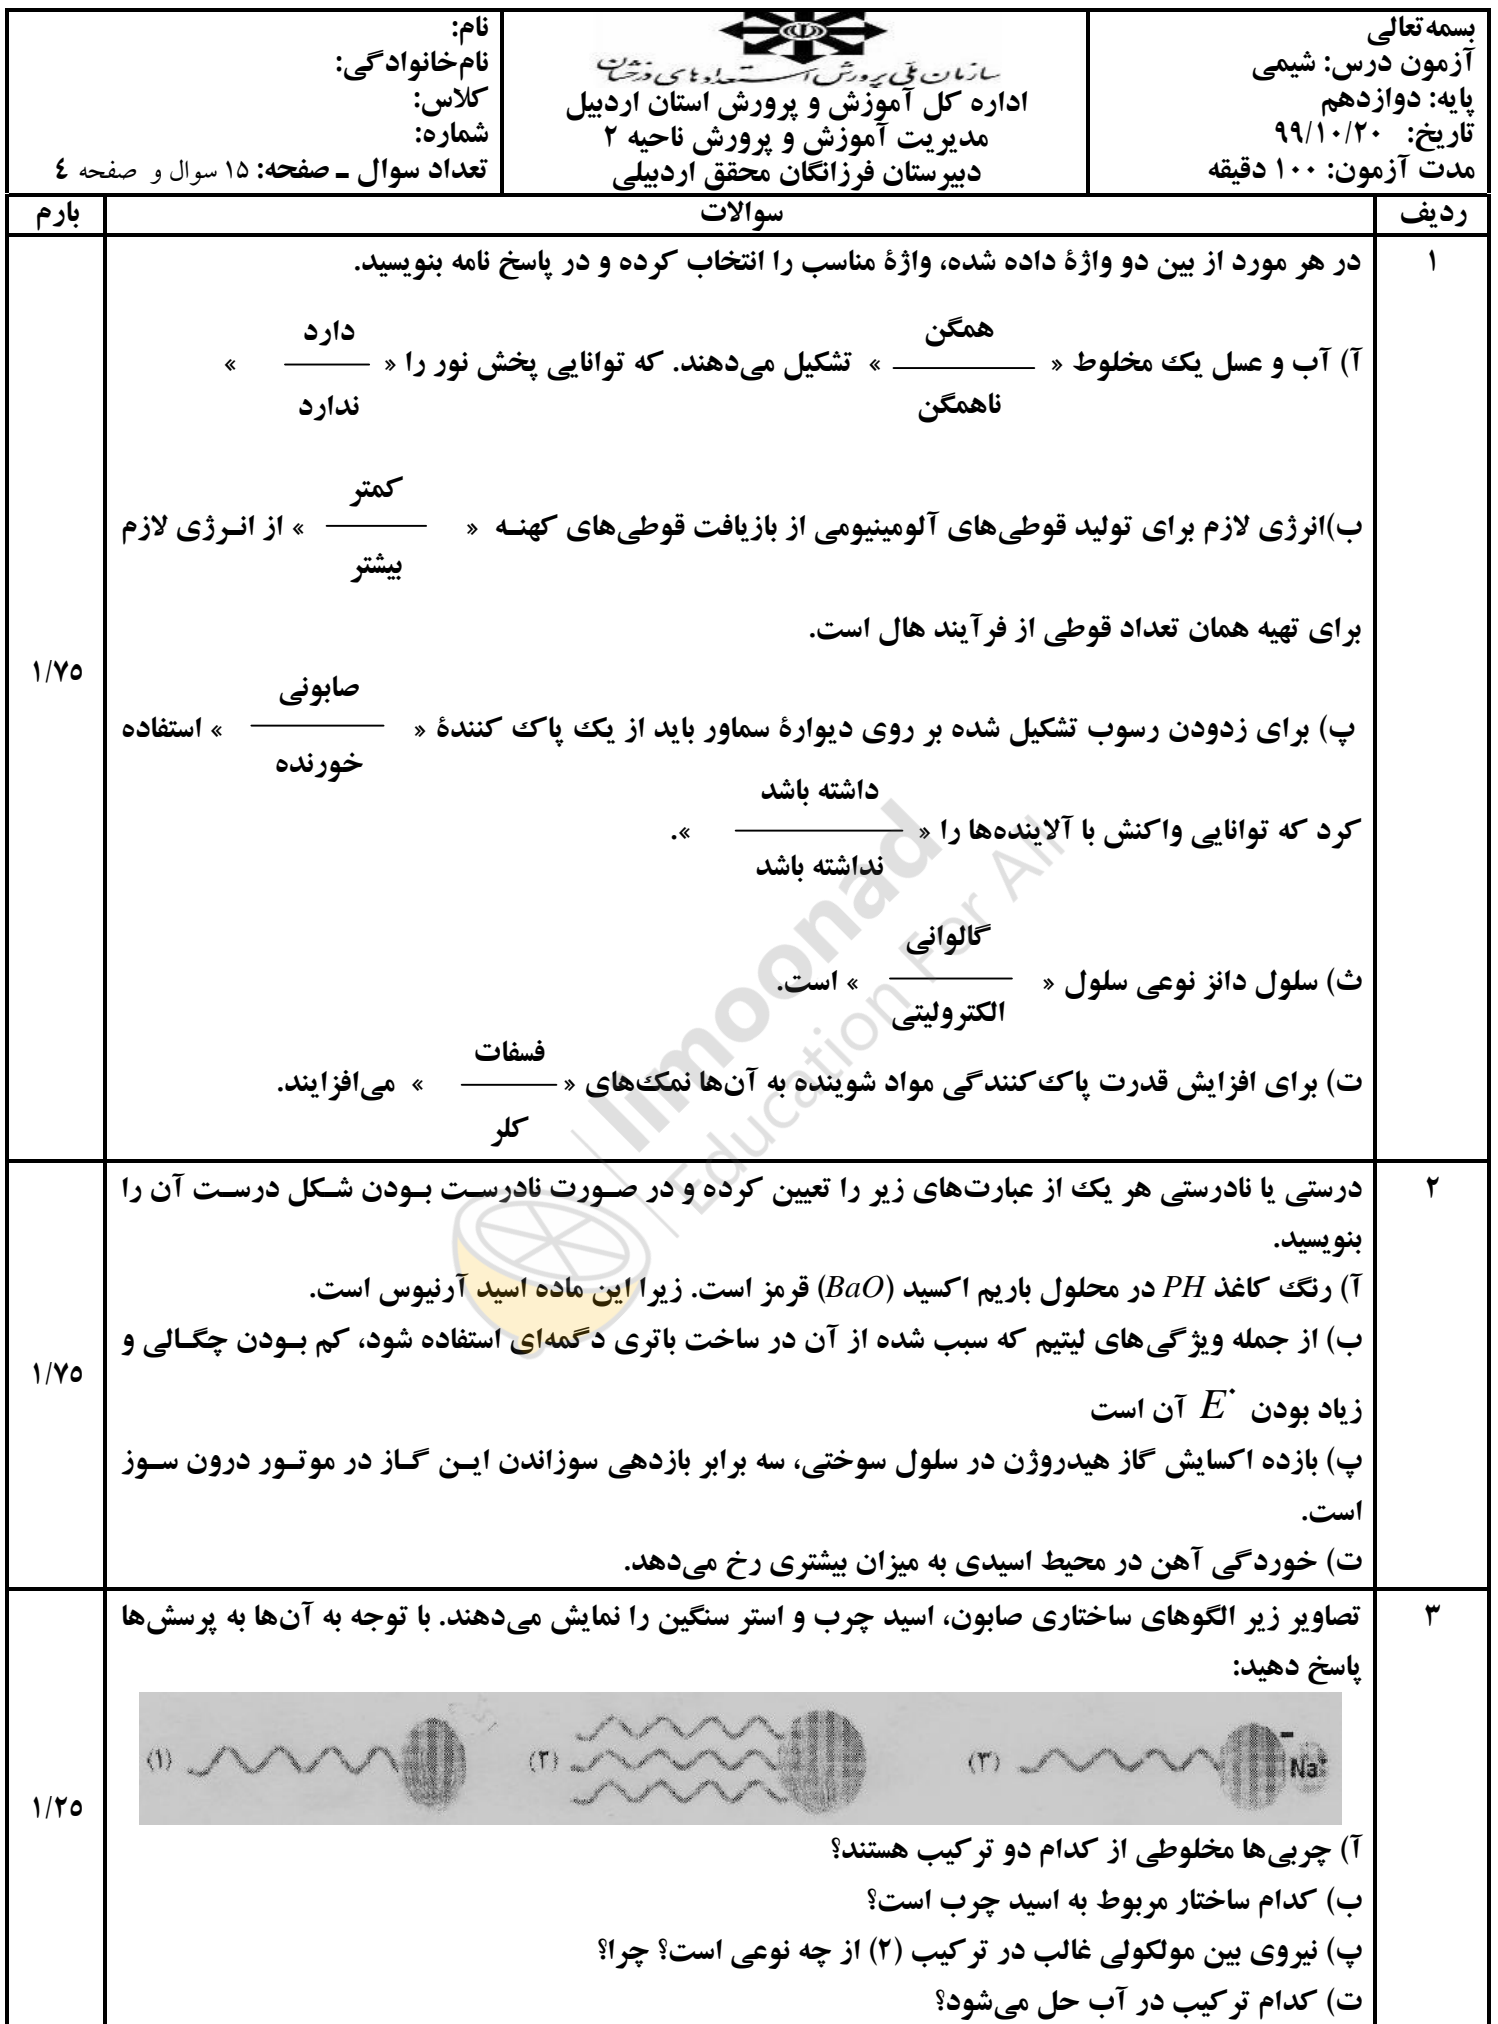 بسمه‌تعالی
آزمون درس: شیمی
پایه: دوازدهم
تاریخ: ۹۹/۱۰/۲۰
مدت آزمون: ۱۰۰ دقیقه
سازمان ملی پرورش استعدادهای درخشان
اداره کل آموزش و پرورش استان اردبیل
مدیریت آموزش و پرورش ناحیه ۲
دبیرستان فرزانگان محقق اردبیلی
نام:
نام‌خانوادگی:
کلاس:
شماره:
تعداد سوال ـ صفحه: ۱۵ سوال و صفحه ٤
ردیف سوالات بارم
۱ در هر مورد از بین دو واژهٔ داده شده، واژهٔ مناسب را انتخاب کرده و در پاسخ نامه بنویسید.
همگن دارد
آ) آب و عسل یک مخلوط « » تشکیل می‌دهند. که توانایی پخش نور را « »
ناهمگن ندارد
کمتر
ب)انرژی لازم برای تولید قوطی‌های آلومینیومی از بازیافت قوطی‌های کهنـه « » از انـرژی لازم
بیشتر
برای تهیه همان تعداد قوطی از فرآیند هال است.
۱/۷۵
صابونی
پ) برای زدودن رسوب تشکیل شده بر روی دیوارهٔ سماور باید از یک پاک کنندهٔ « » استفاده
خورنده
داشته باشد
کرد که توانایی واکنش با آلاینده‌ها را « ».
نداشته باشد
گالوانی
ث) سلول دانز نوعی سلول « » است.
الکترولیتی
فسفات
ت) برای افزایش قدرت پاک‌کنندگی مواد شوینده به آن‌ها نمک‌های « » می‌افزایند.
کلر
limoonad
Education For All
۲ درستی یا نادرستی هر یک از عبارت‌های زیر را تعیین کرده و در صـورت نادرسـت بـودن شـکل درسـت آن را
بنویسید.
آ) رنگ کاغذ PH در محلول باریم اکسید (BaO) قرمز است. زیرا این ماده اسید آرنیوس است.
ب) از جمله ویژگی‌های لیتیم که سبب شده از آن در ساخت باتری دگمه‌ای استفاده شود، کم بـودن چگـالی و
۱/۷۵
زیاد بودن E˚ آن است
پ) بازده اکسایش گاز هیدروژن در سلول سوختی، سه برابر بازدهی سوزاندن ایـن گـاز در موتـور درون سـوز
است.
ت) خوردگی آهن در محیط اسیدی به میزان بیشتری رخ می‌دهد.
۳ تصاویر زیر الگوهای ساختاری صابون، اسید چرب و استر سنگین را نمایش می‌دهند. با توجه به آن‌ها به پرسش‌ها
پاسخ دهید:
(۱) (۲) (۳) - Na+
۱/۲۵
آ) چربی‌ها مخلوطی از کدام دو ترکیب هستند؟
ب) کدام ساختار مربوط به اسید چرب است؟
پ) نیروی بین مولکولی غالب در ترکیب (۲) از چه نوعی است؟ چرا؟
ت) کدام ترکیب در آب حل می‌شود؟